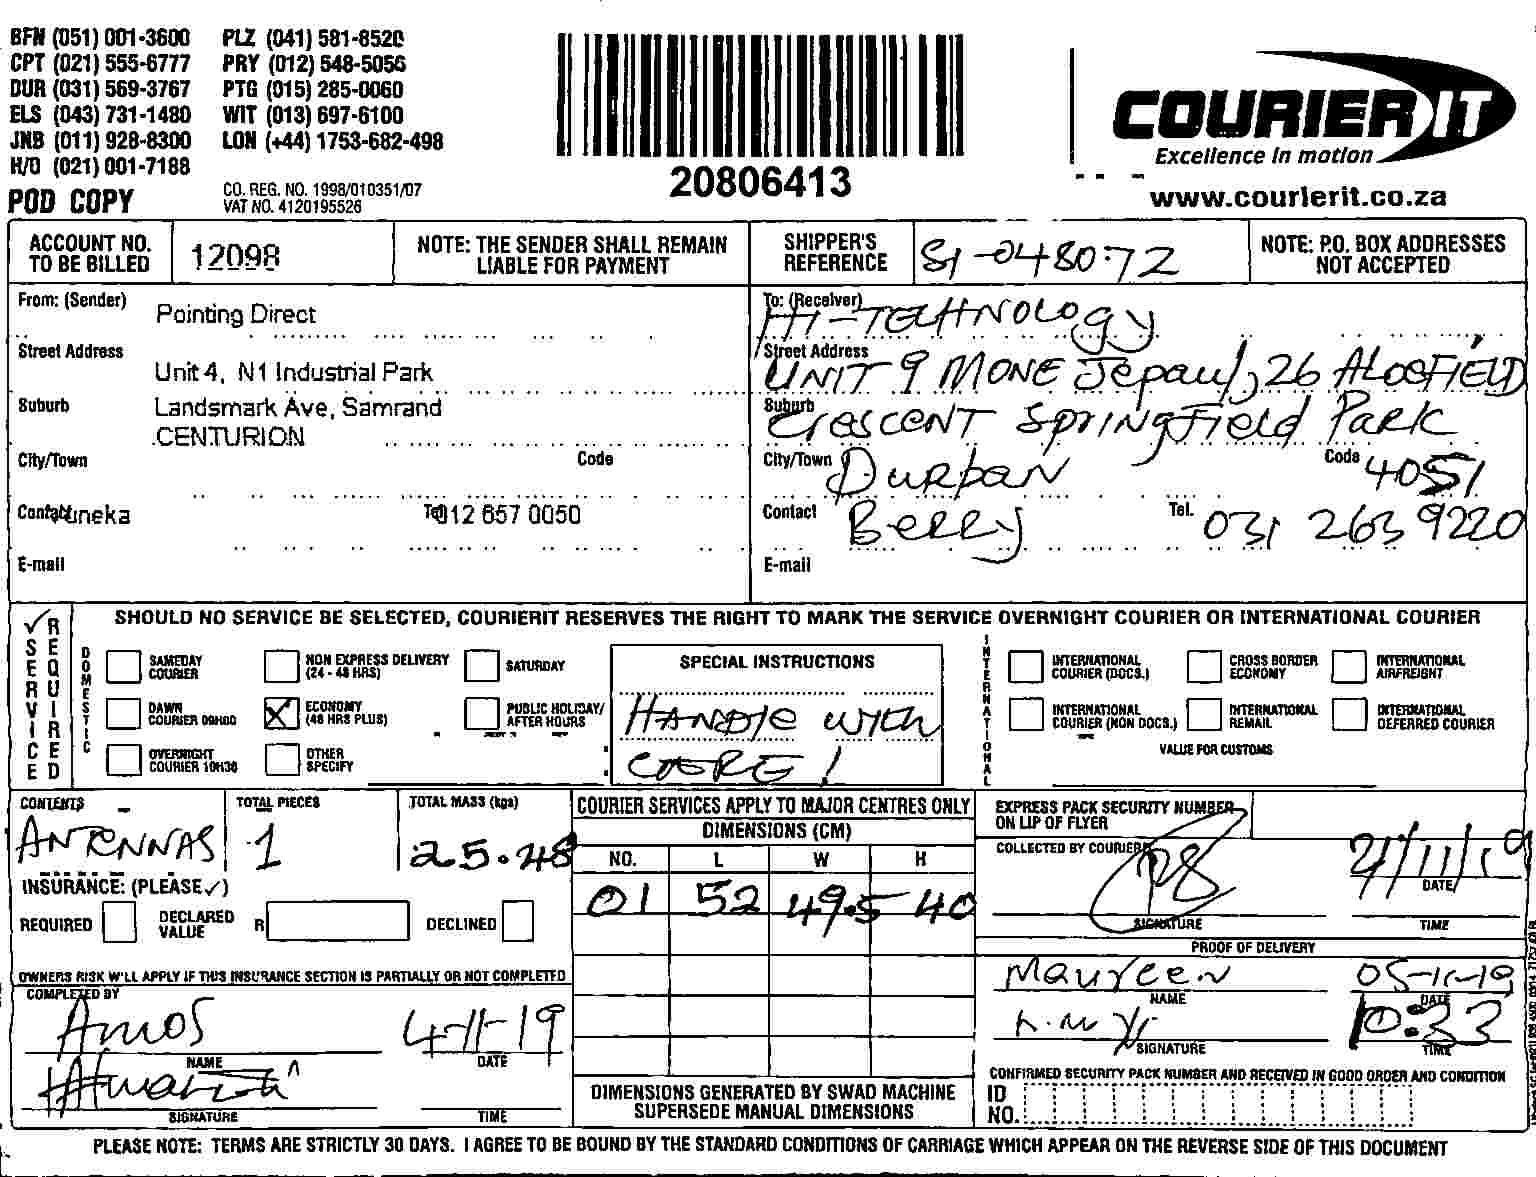 BFN (051) 001-3600 PLZ (041) 581-8520
CPT (021) 555-6777 PRY (012) 548-5056
DUR (031) 569-3767 PTG (015) 285-0060
ELS (043) 731-1480 WIT (013) 697-6100
JNB (011) 928-8300 LON (+44) 1753-682-498
H/O (021) 001-7188
POD COPY
CO. REG. NO. 1998/010351/07
VAT NO. 4120195526
20806413
COURIER IT
Excellence in motion
www.courierit.co.za
ACCOUNT NO. TO BE BILLED 12098
NOTE: THE SENDER SHALL REMAIN LIABLE FOR PAYMENT
SHIPPER'S REFERENCE SI-048072
NOTE: P.O. BOX ADDRESSES NOT ACCEPTED
From: (Sender) Pointing Direct
Street Address Unit 4, N1 Industrial Park
Suburb Landsmark Ave, Samrand
CENTURION
City/Town Code
Contact Tel 012 657 0050
E-mail
To: (Receiver) HI-TECHNOLOGY
Street Address UNIT 9 MONE Jepaul, 26 ALOEFIELD
Suburb Crescent Springfield Park
City/Town Durban Code 4051
Contact Berry Tel. 031 263 9220
E-mail
SERVICE REQUIRED
SHOULD NO SERVICE BE SELECTED, COURIERIT RESERVES THE RIGHT TO MARK THE SERVICE OVERNIGHT COURIER OR INTERNATIONAL COURIER
DOMESTIC
SAMEDAY COURIER
NON EXPRESS DELIVERY (24 - 48 HRS)
SATURDAY
DAWN COURIER 09H00
ECONOMY (48 HRS PLUS)
PUBLIC HOLIDAY/ AFTER HOURS
OVERNIGHT COURIER 10H30
OTHER SPECIFY
SPECIAL INSTRUCTIONS
HANDLE WITH
CARE!
INTERNATIONAL
INTERNATIONAL COURIER (DOCS.)
CROSS BORDER ECONOMY
INTERNATIONAL AIRFREIGHT
INTERNATIONAL COURIER (NON DOCS.)
INTERNATIONAL REMAIL
INTERNATIONAL DEFERRED COURIER
VALUE FOR CUSTOMS
CONTENTS ANTENNAS
TOTAL PIECES 1
TOTAL MASS (kgs) 25.48
INSURANCE: (PLEASE ✓)
REQUIRED DECLARED VALUE R DECLINED
OWNERS RISK W'LL APPLY IF THIS INSURANCE SECTION IS PARTIALLY OR NOT COMPLETED
COMPLETED BY
Amos 4-11-19
NAME DATE
SIGNATURE TIME
COURIER SERVICES APPLY TO MAJOR CENTRES ONLY
DIMENSIONS (CM)
NO. L W H
01 52 49.5 40
DIMENSIONS GENERATED BY SWAD MACHINE SUPERSEDE MANUAL DIMENSIONS
EXPRESS PACK SECURITY NUMBER ON LIP OF FLYER
COLLECTED BY COURIER
SIGNATURE
DATE
TIME
PROOF OF DELIVERY
Maureen 05-11-19
NAME DATE
10:33
SIGNATURE TIME
CONFIRMED SECURITY PACK NUMBER AND RECEIVED IN GOOD ORDER AND CONDITION
ID NO.
PLEASE NOTE: TERMS ARE STRICTLY 30 DAYS. I AGREE TO BE BOUND BY THE STANDARD CONDITIONS OF CARRIAGE WHICH APPEAR ON THE REVERSE SIDE OF THIS DOCUMENT